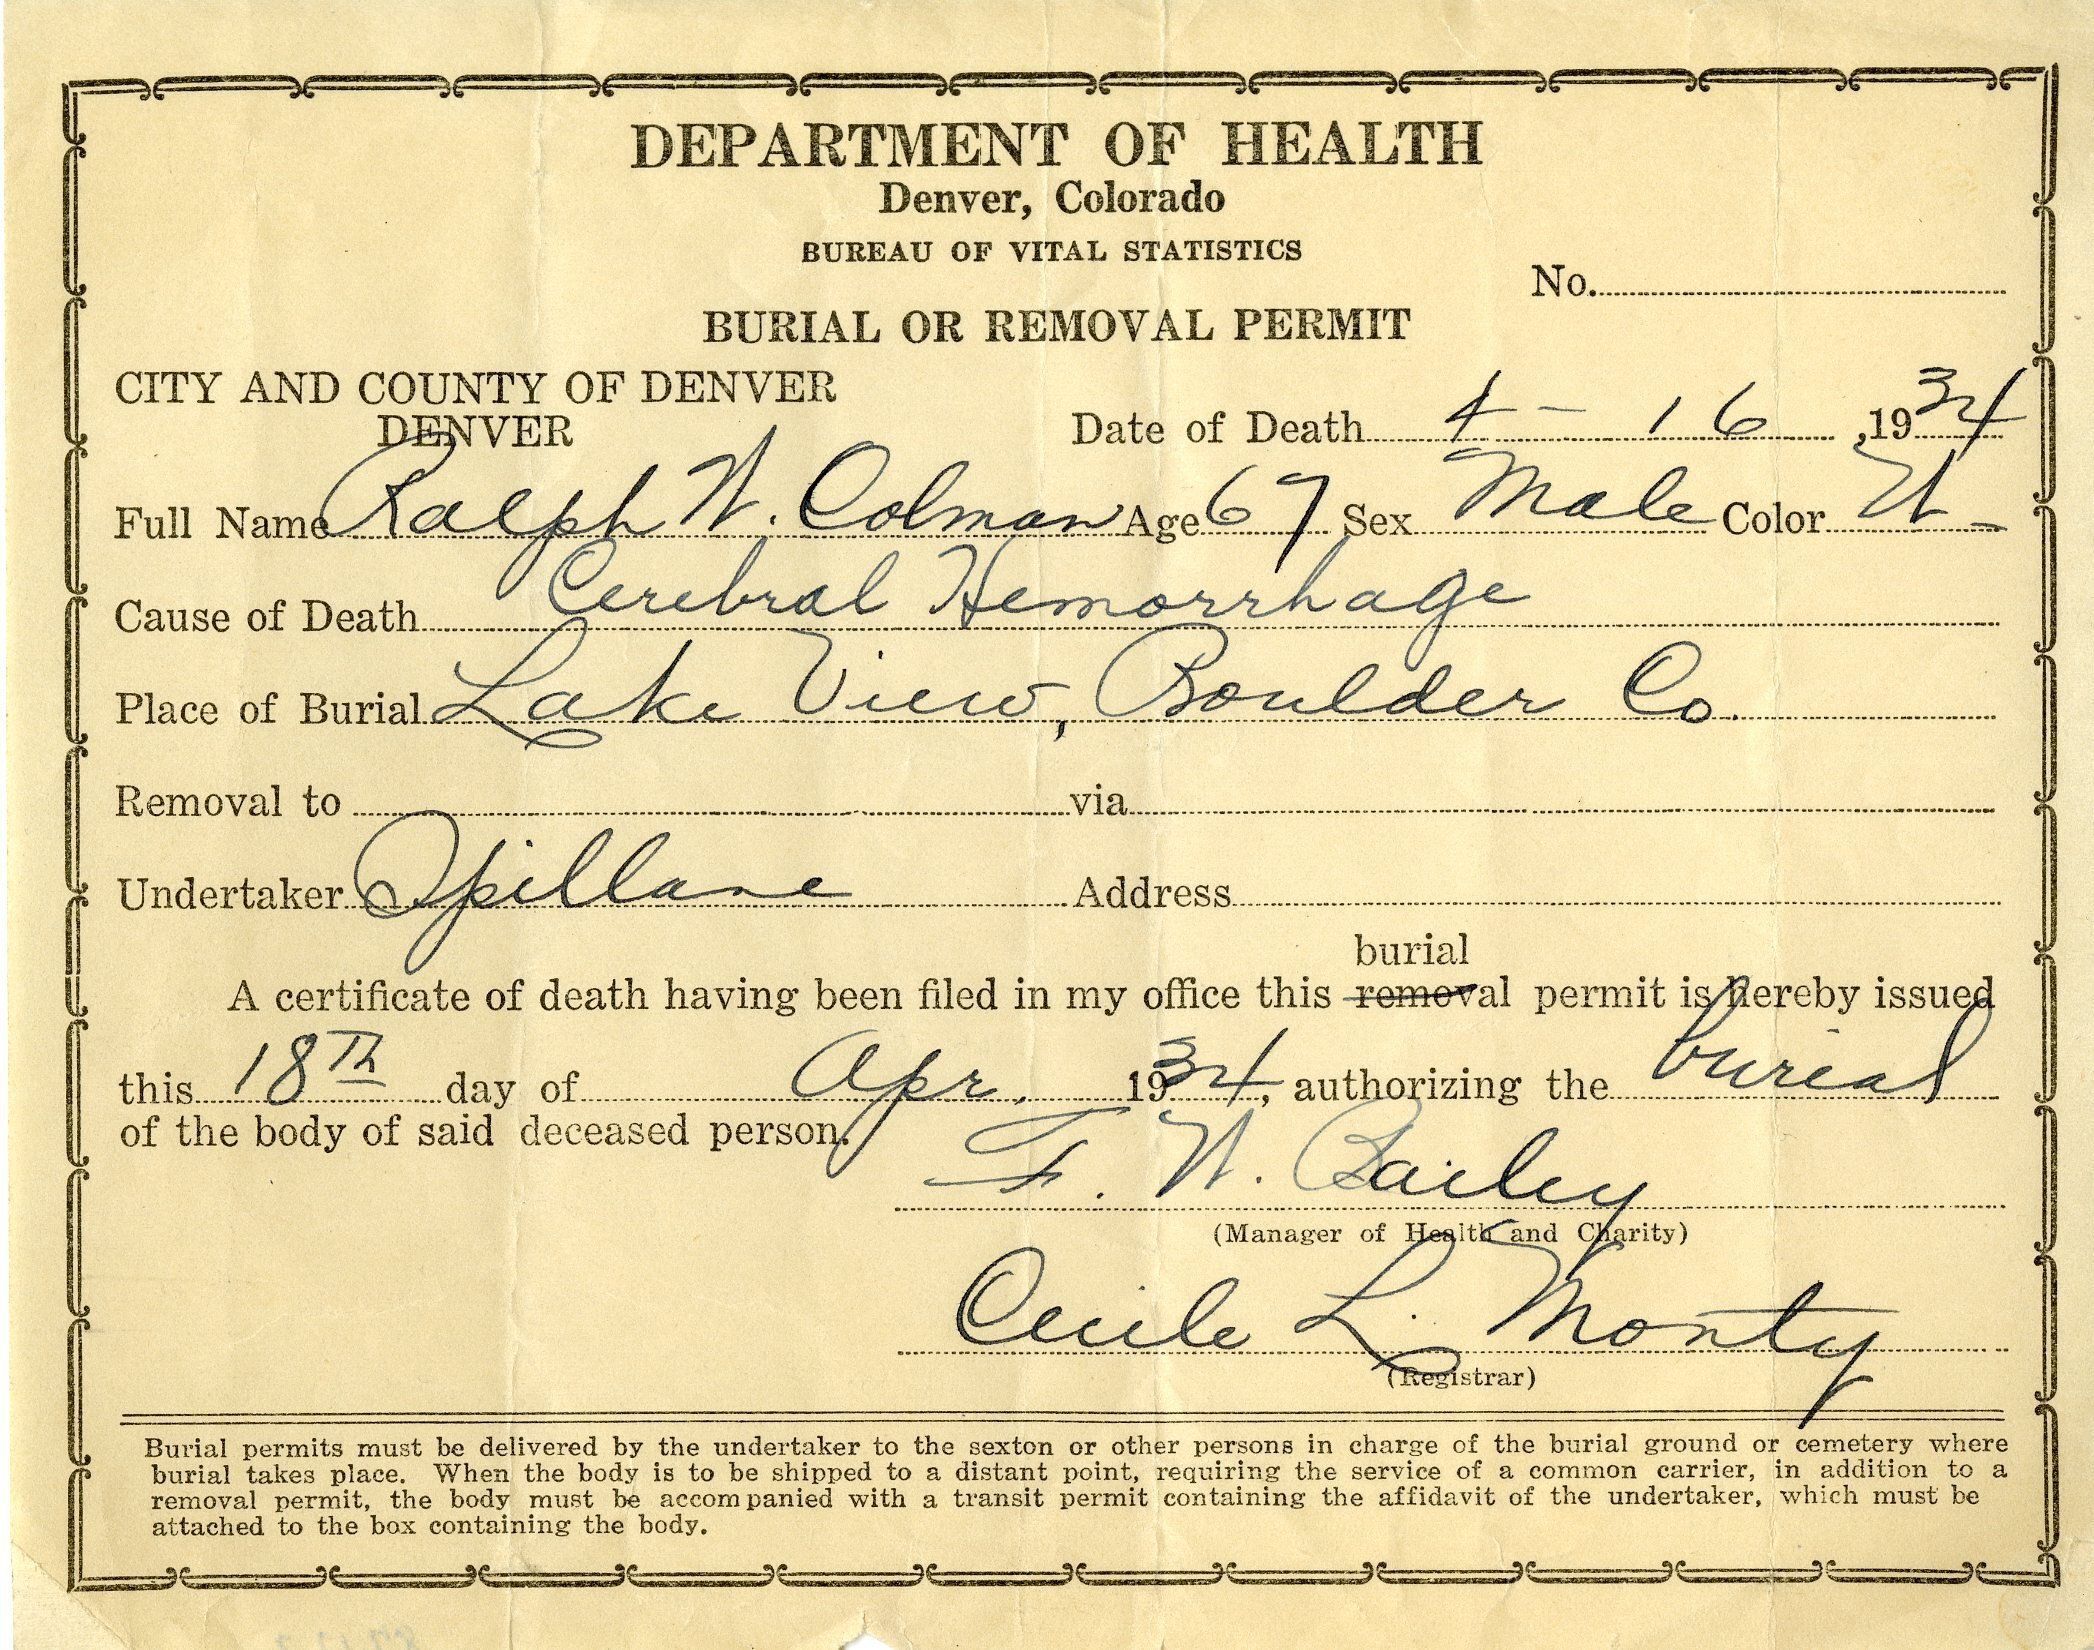 DEPARTMENT OF HEALTH
Denver, Colorado
BUREAU OF VITAL STATISTICS
No.
BURIAL OR REMOVAL PERMIT
CITY AND COUNTY OF DENVER
DENVER
Date of Death 4 - 16, 1934
Full Name Ralph W. Colman Age 67 Sex Male Color W-
Cause of Death Cerebral Hemorrhage
Place of Burial Lake View, Boulder Co.
Removal to via
Undertaker Spillane Address
burial
A certificate of death having been filed in my office this removal permit is hereby issued
this 18th day of Apr. 1934, authorizing the burial
of the body of said deceased person.
F. W. Bailey
(Manager of Health and Charity)
Cecile L. Monty
(Registrar)
Burial permits must be delivered by the undertaker to the sexton or other persons in charge of the burial ground or cemetery where
burial takes place. When the body is to be shipped to a distant point, requiring the service of a common carrier, in addition to a
removal permit, the body must be accompanied with a transit permit containing the affidavit of the undertaker, which must be
attached to the box containing the body.